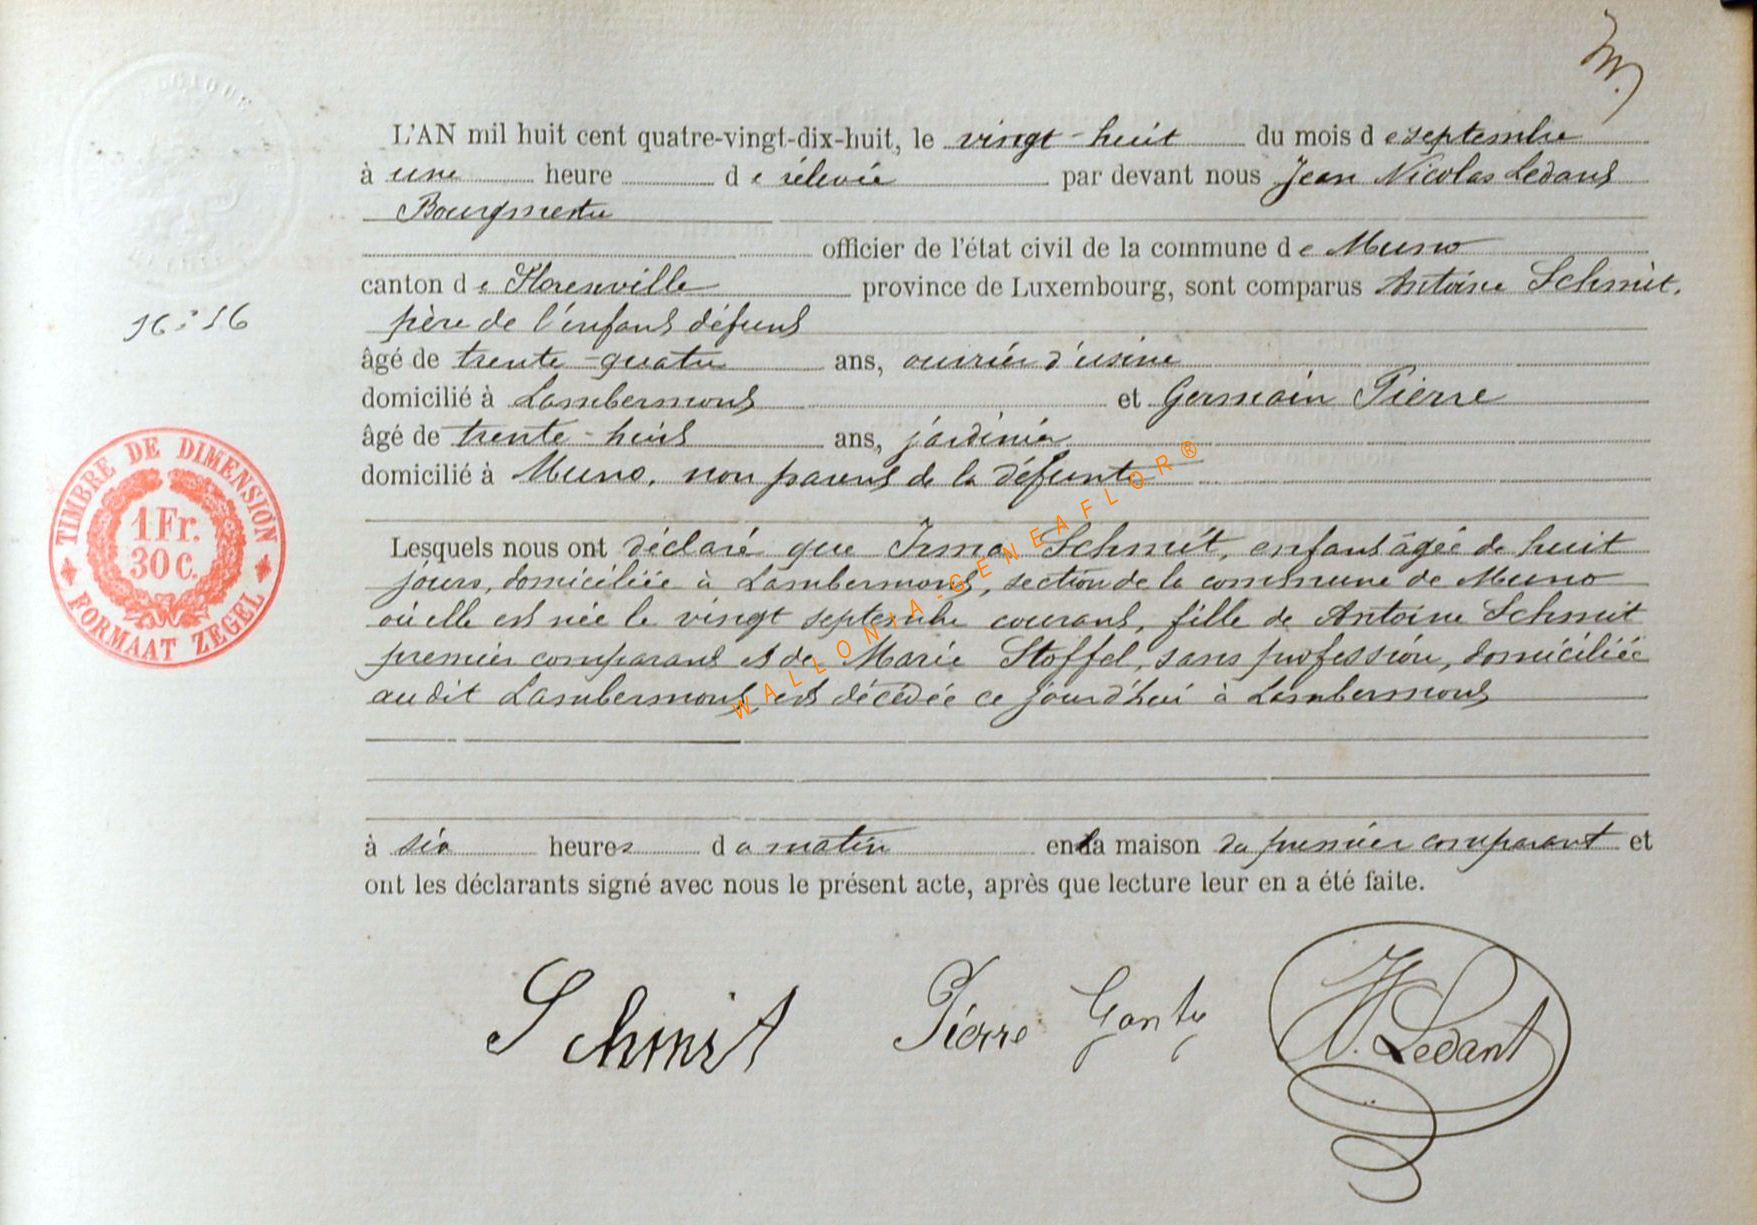 L'AN mil huit cent quatre-vingt-dix-huit, le vingt-huit du mois de septembre
à une heure de relevée par devant nous Jean Nicolas Ledant
Bourgmestre
officier de l'état civil de la commune de Muno
canton de Florenville province de Luxembourg, sont comparus Antoine Schmit,
père de l'enfant défunt
âgé de trente-quatre ans, ouvrier d'usine
domicilié à Lambermont et Germain Pierre
âgé de trente-huit ans, jardinier
domicilié à Muno, non parent de la défunte
Lesquels nous ont déclaré que Irma Schmit, enfant âgée de huit
jours, domiciliée à Lambermont, section de la commune de Muno
où elle est née le vingt septembre courant, fille de Antoine Schmit
premier comparant et de Marie Stoffel, sans profession, domiciliée
au dit Lambermont, est décédée ce jourd'hui à Lambermont
à six heures du matin en la maison du premier comparant et
ont les déclarants signé avec nous le présent acte, après que lecture leur en a été faite.
Schmit Pierre N. Ledant
BELGIQUE
16
TIMBRE DE DIMENSION
1 Fr.
30 C.
FORMAAT ZEGEL
WALLONIA-GENEAFLOR®